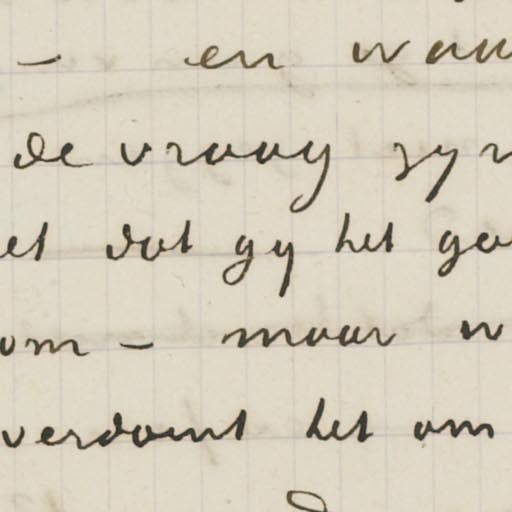 – en waa
de vraag zyn
et dat gy het ga
om – maar w
verdomt het om